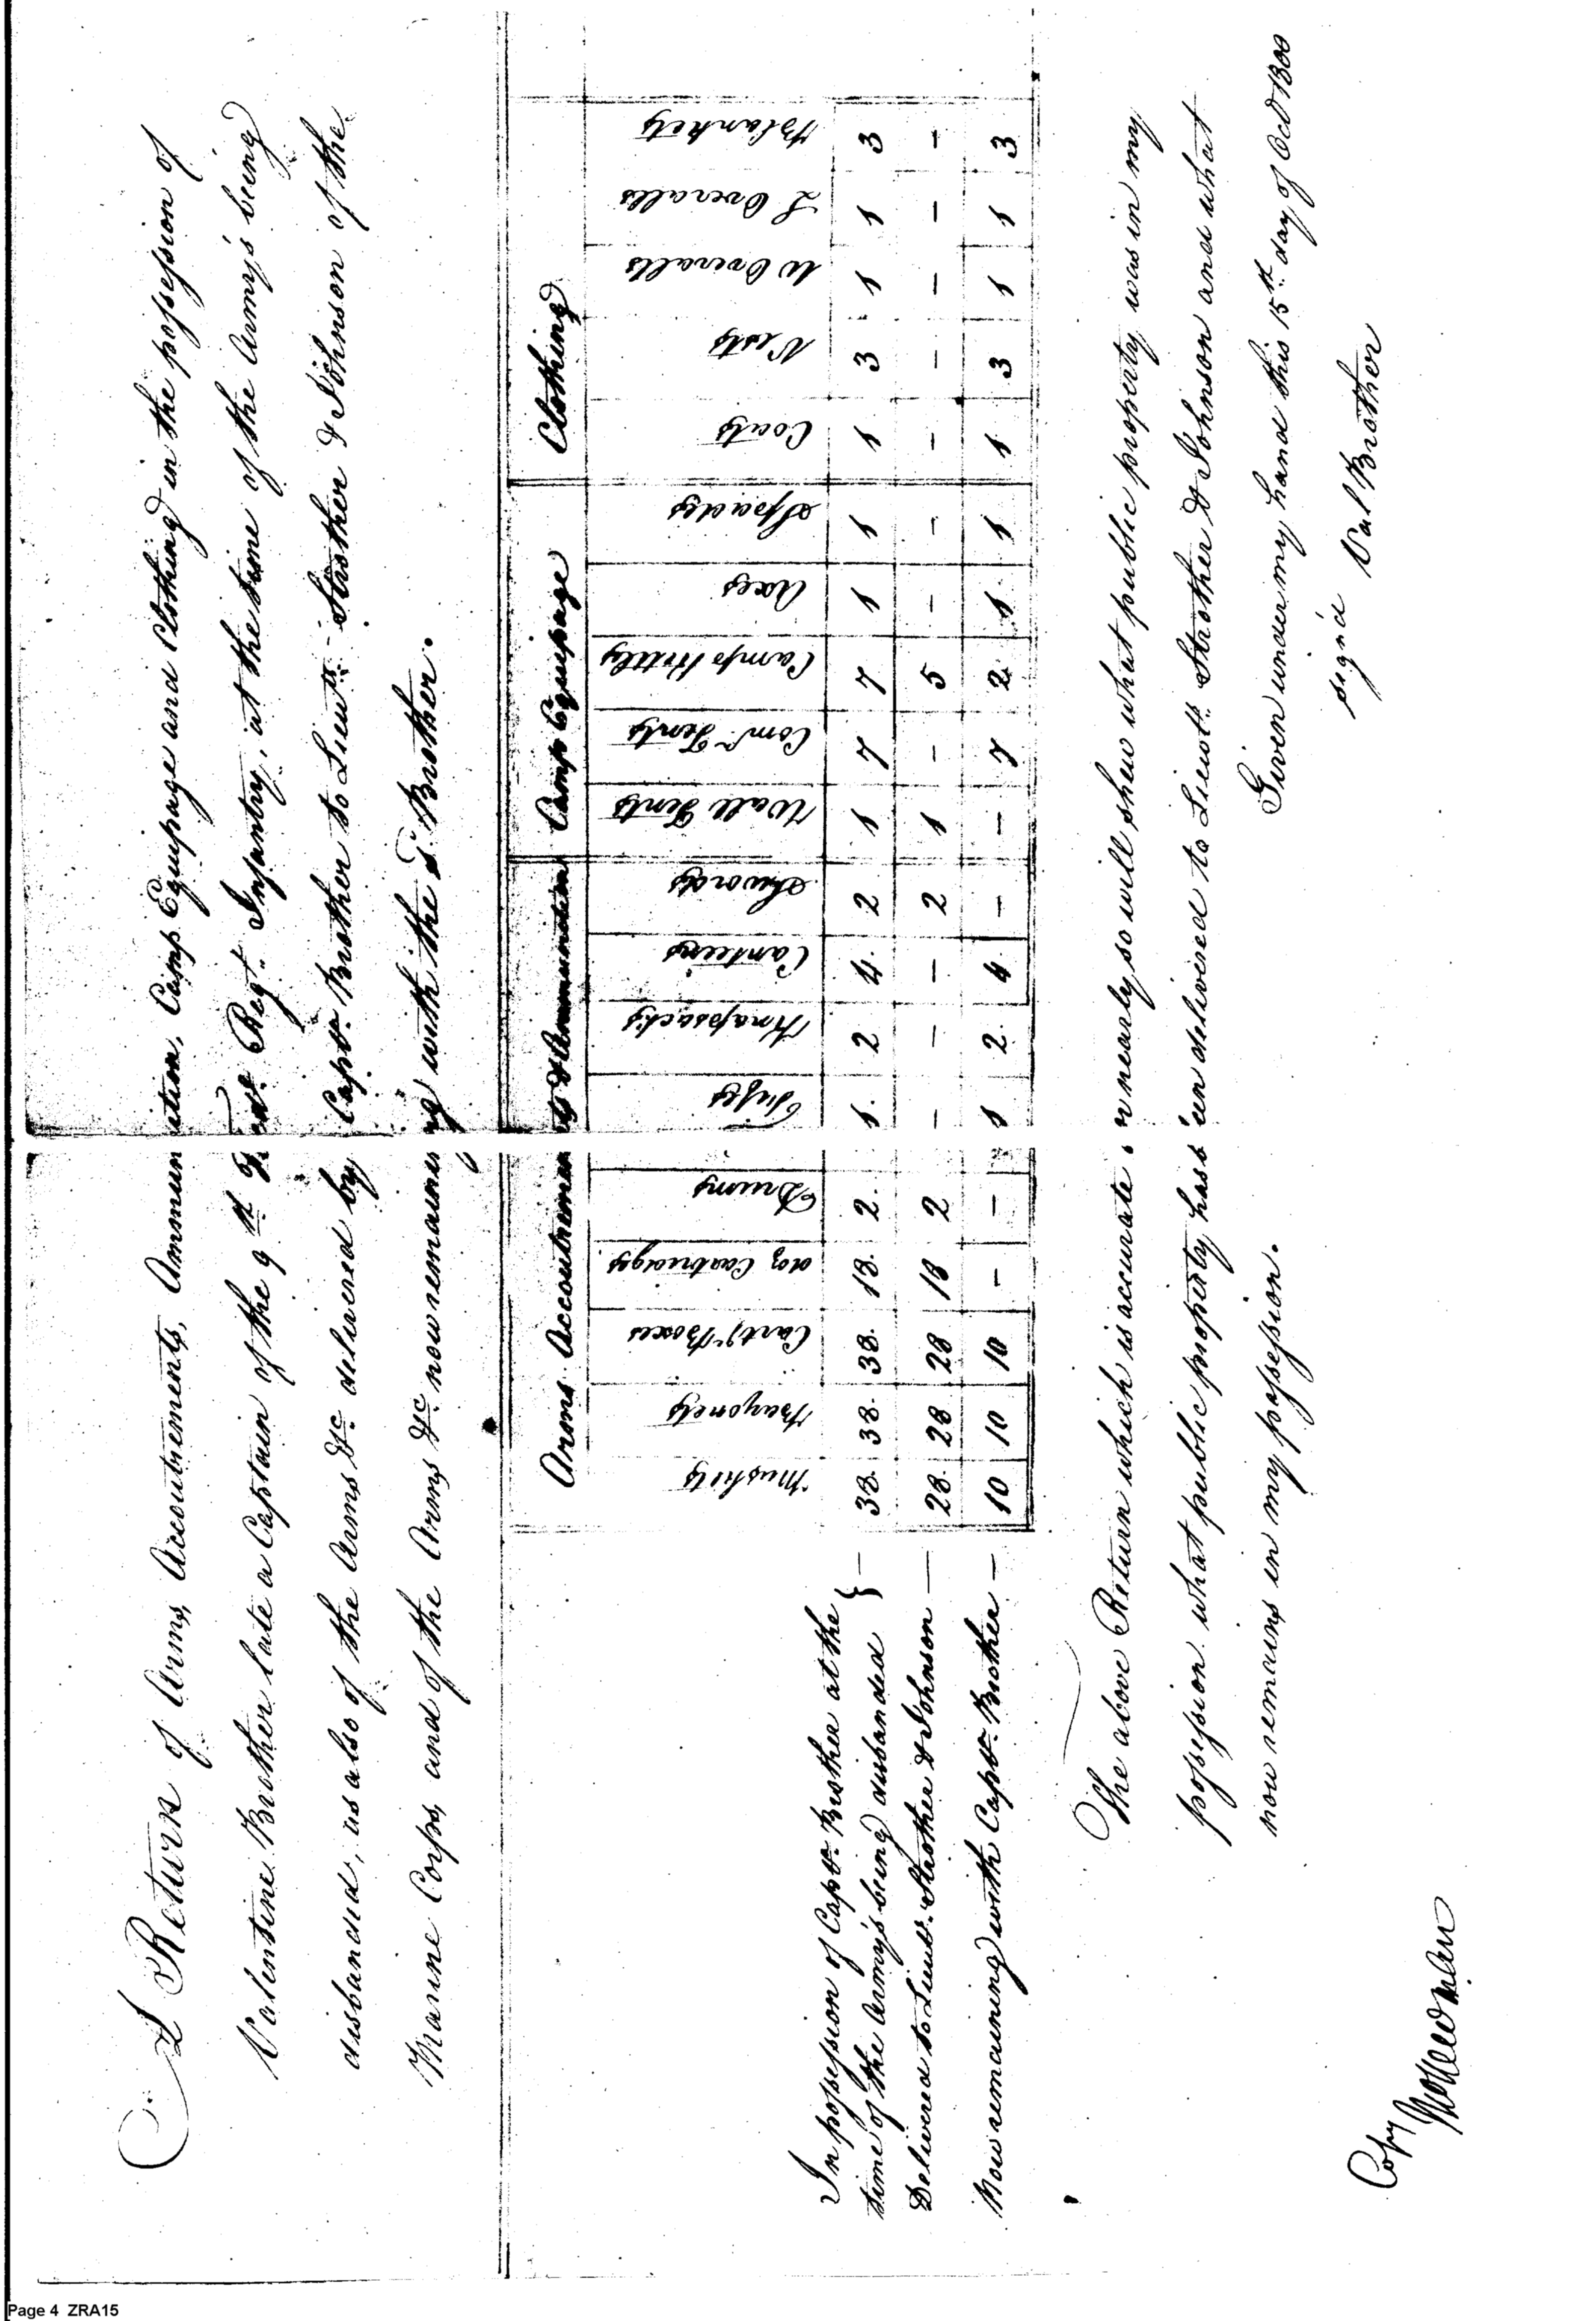 A Return of Arms, Accoutrements, Ammunition, Camp Equipage and Clothing in the possession of
Valentine Brother late a Captain of the 9th Regt. Infantry, at the time of the Army's being
disbanded, as also of the Arms &c. delivered by Capt. Brother to Lieuts. Strother & Johnson of the
Marine Corps, and of the Arms &c. now remaining with the Brother.
Arms Accoutrements & Ammunition Camp Equipage Clothing
Muskets Bayonets Cart. Boxes doz Cartridges Drums Fifes Knapsacks Canteens Swords Wall Tents Comn. Tents Camp Kettles Axes Spades Coats Vests W Overalls L Overalls Blankets
In possession of Capt. Brother at the
time of the Army's being disbanded } — 38. 38. 38. 18. 2. 1. 2 4. 2 1 7 7 1 1 1 3 1 1 3
Delivered to Lieuts. Strother & Johnson — 28. 28 28 18 2 — — — 2 1 — 5 — — — — — — —
Now remaining with Capt. Brother — 10 10 10 — — 1 2. 4 — — 7 2. 1 1 1 3 1 1 3
The above Return which is accurate or nearly so will shew what public property was in my
possession what public property has been delivered to Lieuts. Strother & Johnson and what
now remains in my possession.
Given under my hand this 15th day of Oct 1800
sign'd Val Brother
Copy
Page 4 ZRA15